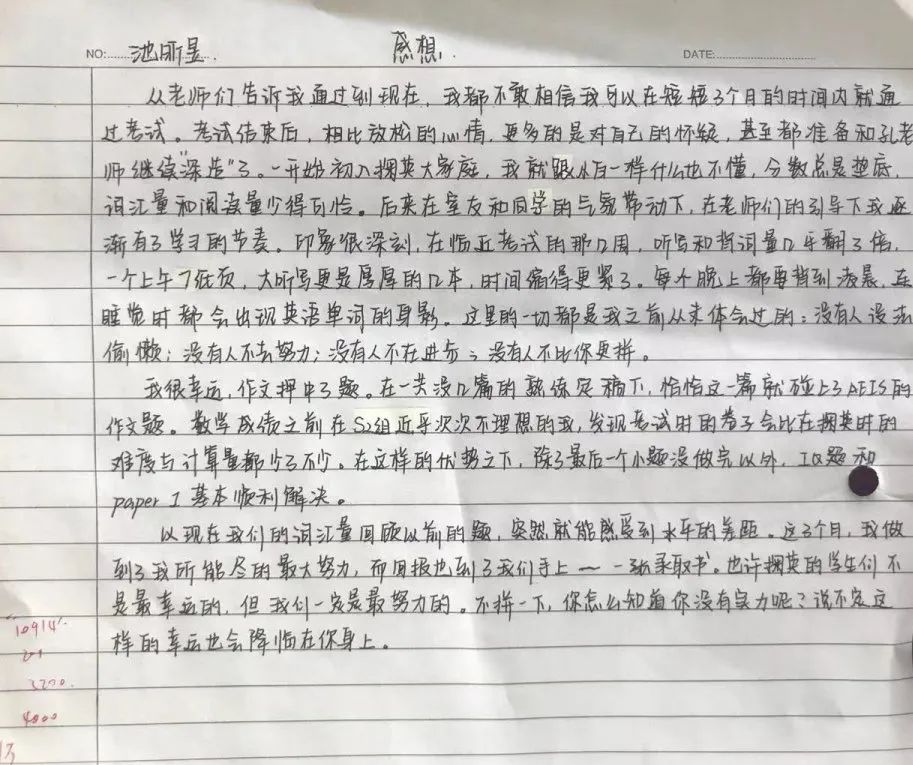 NO: 池昕昱. 感想. DATE:
从老师们告诉我通过到现在，我都不敢相信我可以在短短3个月的时间内就通
过考试。考试结束后，相比放松的心情，更多的是对自己的怀疑，甚至都准备和孔老
师继续"深造"了。一开始初入拥英大家庭，我就跟小白一样什么也不懂，分数总是垫底，
词汇量和阅读量少得可怜。后来在室友和同学的气氛带动下，在老师们的引导下我逐
渐有了学习的节奏。印象很深刻，在临近考试的那几周，听写和背词量几乎翻了倍，
一个上午7张页，大听写更是厚厚的几本，时间缩得更紧了。每个晚上都要背到凌晨，连
睡觉时都会出现英语单词的身影。这里的一切都是我之前从未体会过的：没有人说去
偷懒；没有人不去努力；没有人不在进步；没有人不比你更拼。
我很幸运，作文押中了题。在一共没几篇的熟练定稿下，恰恰这一篇就碰上了AEIS的
作文题。数学成绩之前在S2组近乎次次不理想的我，发现考试时的卷子会比在拥英时的
难度与计算量都少了不少。在这样的优势之下，除了最后一个小题没做完以外，IQ题和
paper 1 基本顺利解决。
以现在我们的词汇量回顾以前的题，突然就能感受到水平的差距。这3个月，我做
到了我所能尽的最大努力，而回报也到了我们手上——一张录取书。也许拥英的学生们不
是最幸运的，但我们一定是最努力的。不拼一下，你怎么知道你没有实力呢？说不定这
样的幸运也会降临在你身上。
10914
3200.
4000